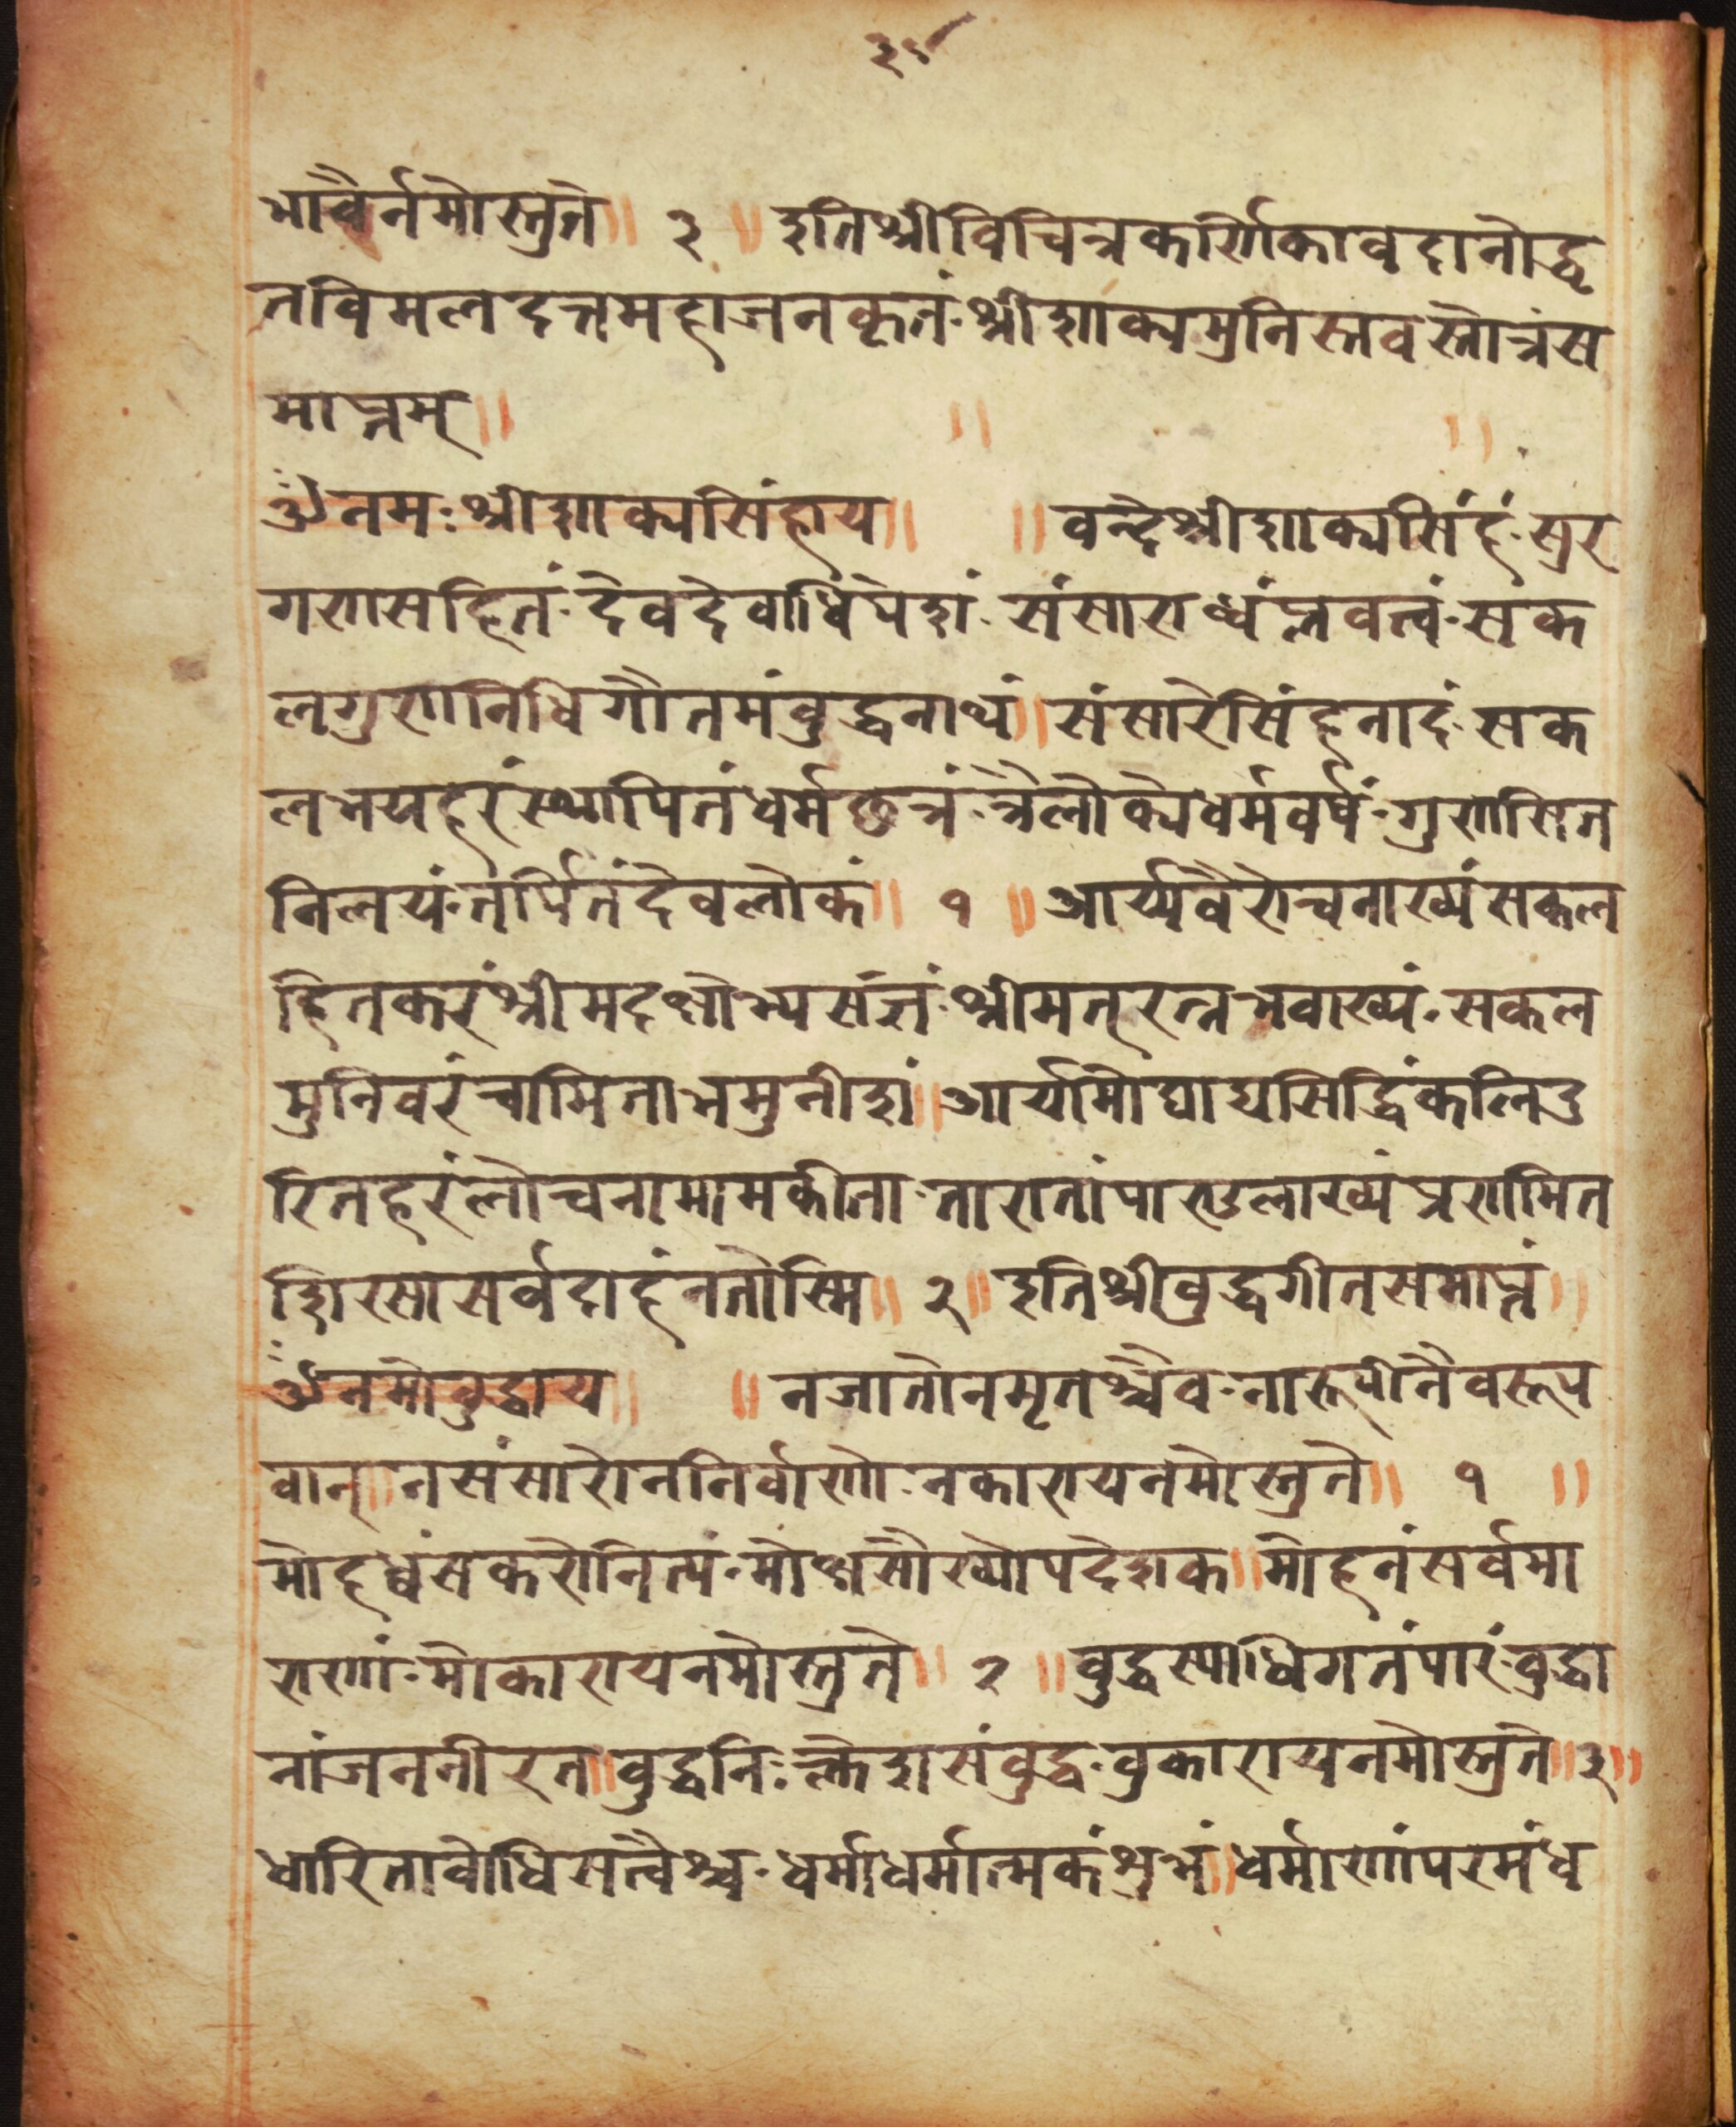 भावैर्नमोस्तुते॥ ३ ॥ इतिश्रीविचित्रकर्णिकावदानोद्धृ
तविमलदत्तमहाजनकृतं·श्रीशाक्यमुनिस्तवस्तोत्रंस
माप्तम्॥ ॥ ॥
ॐनमः श्रीशाक्यसिंहाय॥ ॥ वन्देश्रीशाक्यसिंहं·सुर
गणसहितं·देवदेवाधिंपेशं·संसाराब्धंप्लवत्वं·संक
लगुणनिधिगौतमंवुद्धनाथं॥संसारेसिंहनादं·सक
लभयहरंस्थापितंधर्मछत्रं·त्रैलोक्येधर्मवर्षं·गुणसित
निलयं·तर्पितंदेवलोकं॥ १ ॥ आर्य्यवैरोचनाख्यंसकल
हितकरंश्रीमदक्षोभ्यसंज्ञं·श्रीमत्रत्नभवाख्यं·सकल
मुनिवरंचामिताभमुनीशं॥आर्यामोघाद्यसिद्धिंकलिदु
रितहरंलोचनामामकीता·तारातांपाण्डुलाख्यंप्रणमित
शिरसासर्वदाहंनतोस्मि॥ २ ॥ इतिश्रीवुद्धगीतसमाप्तं॥
ॐनमोवुद्धाय॥ ॥ नजातोनमृतश्चैव·नारूपीनैवरूप
वान्॥नसंसारोननिर्वाणो·नकारायनमोस्तुते॥ १ ॥
मोहध्वंसकरोनित्यं·मोक्षसौख्योपदेशक॥मोहनंसर्वमा
राणां·मोकारायनमोस्तुते॥ २ ॥ वुद्धस्याधिगतंपारं·वुद्धा
नांजननीरत॥वुद्धनिःक्लेशसंवुद्ध·वुकारायनमोस्तुते॥३॥
धारितावोधिसत्वैश्च·धर्माधर्मात्मकंशुभं॥धर्माणांपरमंध